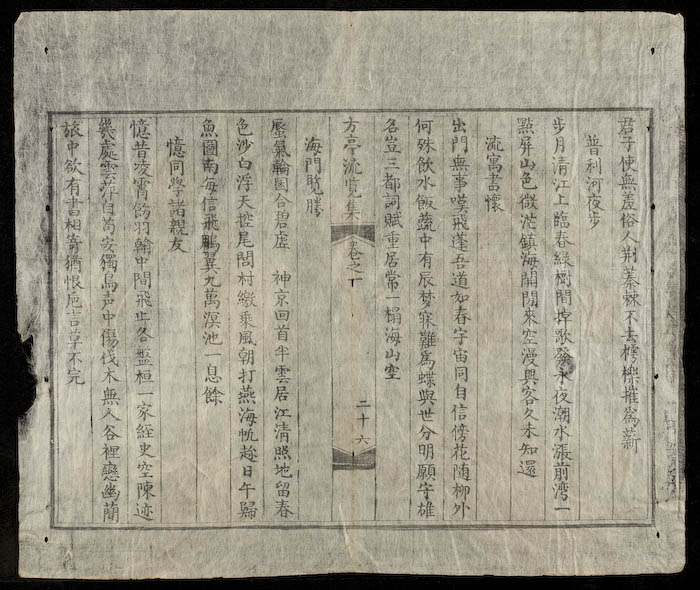 君子使無羞俗人荆蓁棘不去樗櫟摧為薪
普利河夜步
步月清江上臨春綠樹間棹歌發永夜潮水漲前湾一
點屏山色微茫鎮海関閒來空漫興客久未知還
流寓書懷
出門無事嘆飛蓬吾道如春宇宙同自信傍花随柳外
何殊飲水飯蔬中有辰梦寐難為蝶與世分明願守雄
名豈三都詞賦重居常一榻海山空
方亭流覽集
卷之丁
二十六
海門覽勝
蜃氣輪囷合碧虛 神京回首半雲居江清照地留春
色沙白浮天控尾閭村繳乘風朝打燕海帆趂日午歸
魚圖南每信飛鵬翼九萬溟池一息餘
憶同學諸親友
憶昔凌霄飭羽翰中間飛步各盤桓一家経史空陳迹
幾處雲萍自苟安獨鳥声中傷伐木無人谷裡戀幽蘭
旅中欲有書相寄猶恨巵言草不完